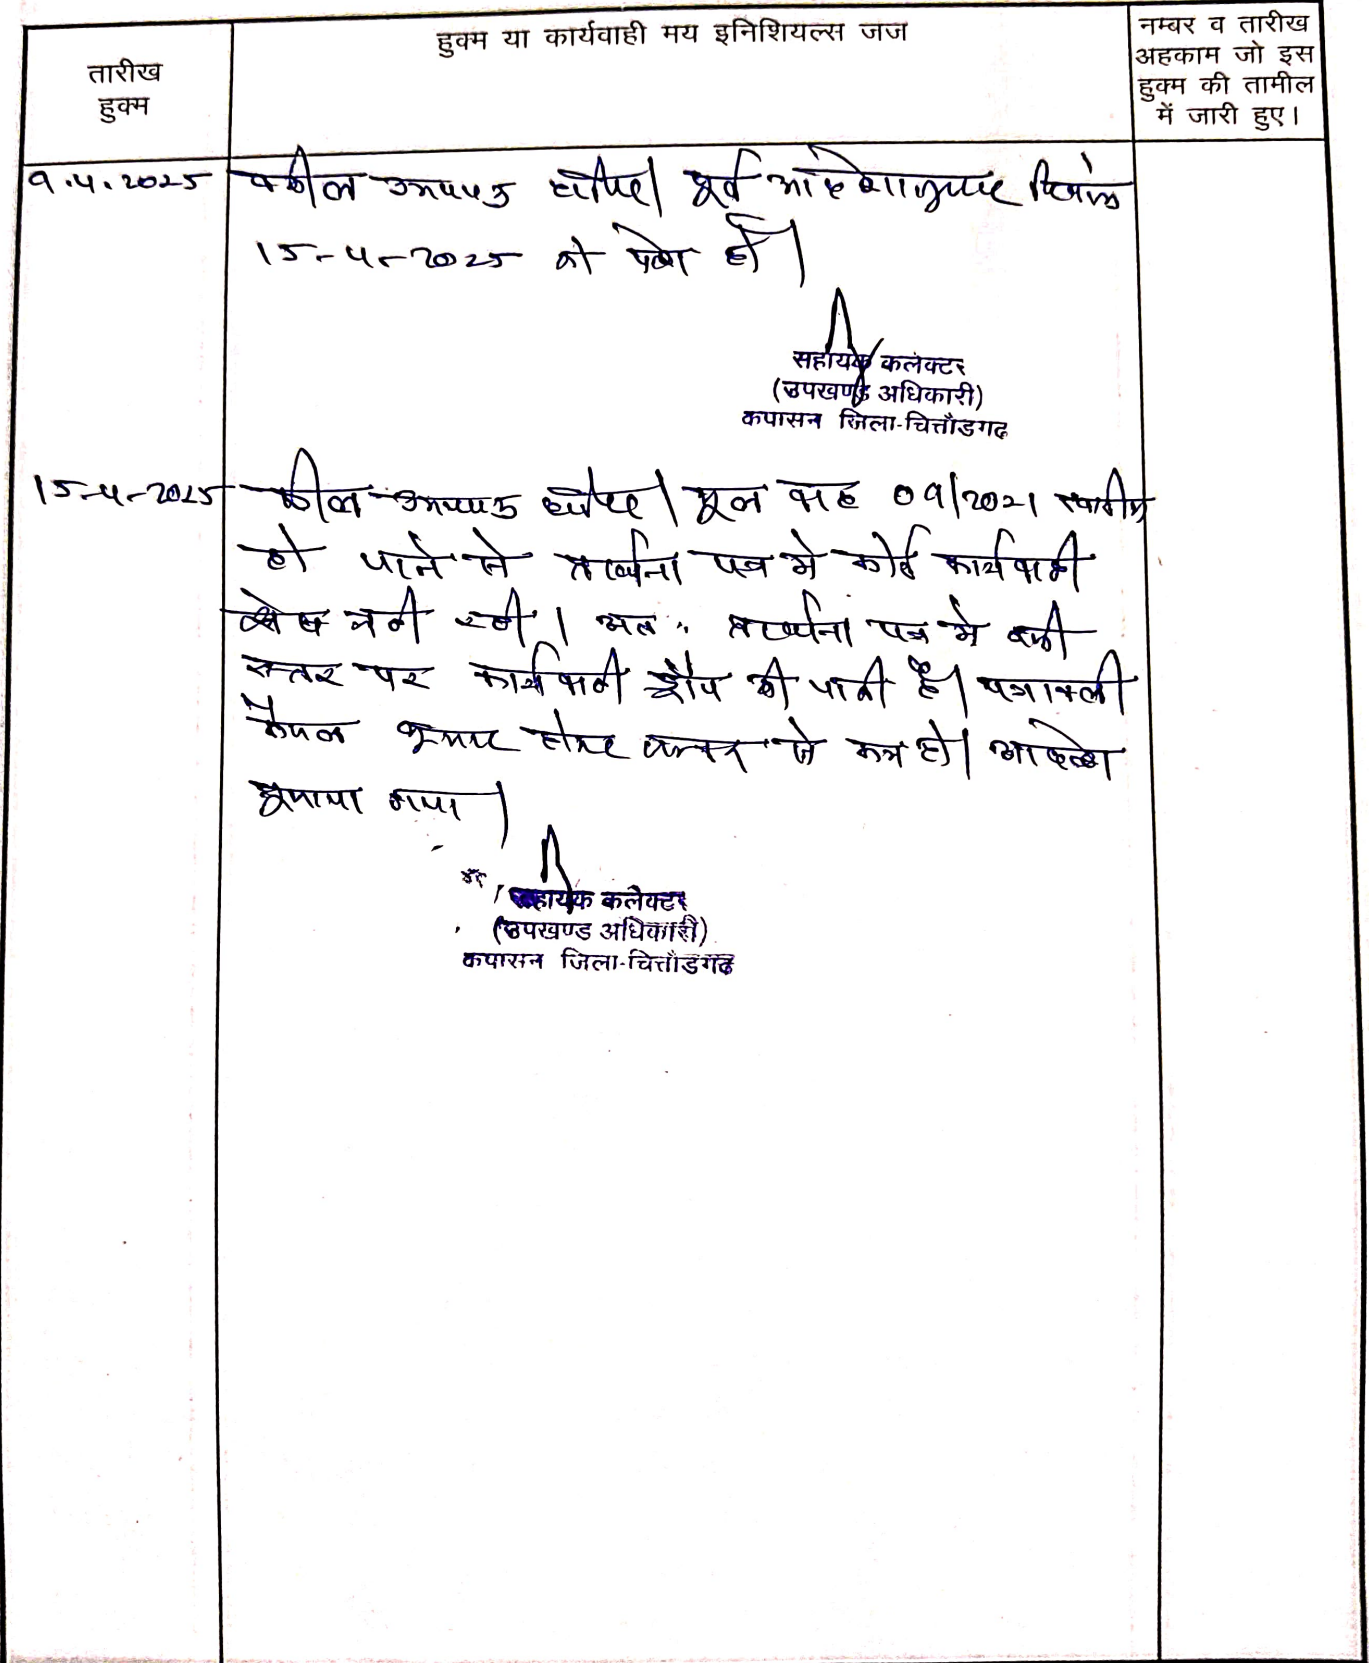 तारीख
हुक्म
हुक्म या कार्यवाही मय इनिशियल्स जज
नम्बर व तारीख
अहकाम जो इस
हुक्म की तामील
में जारी हुए।
9.4.2025 वकील उभयपक्ष हाजिर। पूर्व आदेशानुसार दिनांक
15-4-2025 को पेश हो।
सहायक कलेक्टर
(उपखण्ड अधिकारी)
कपासन जिला-चित्तौडगढ
15-4-2025 वकील उभयपक्ष हाजिर। मूल वाद 09/2021
हो जाने से प्रार्थना पत्र मे कोई कार्यवाही
शेष नही रही। अतः प्रार्थना पत्र मे इसी
स्तर पर कार्यवाही ड्रोप की जाती है। पत्रावली
फैसल शुमार होकर नम्बर से कम हो। आदेश
सुनाया गया।
सहायक कलेक्टर
(उपखण्ड अधिकारी)
कपासन जिला-चित्तौडगढ